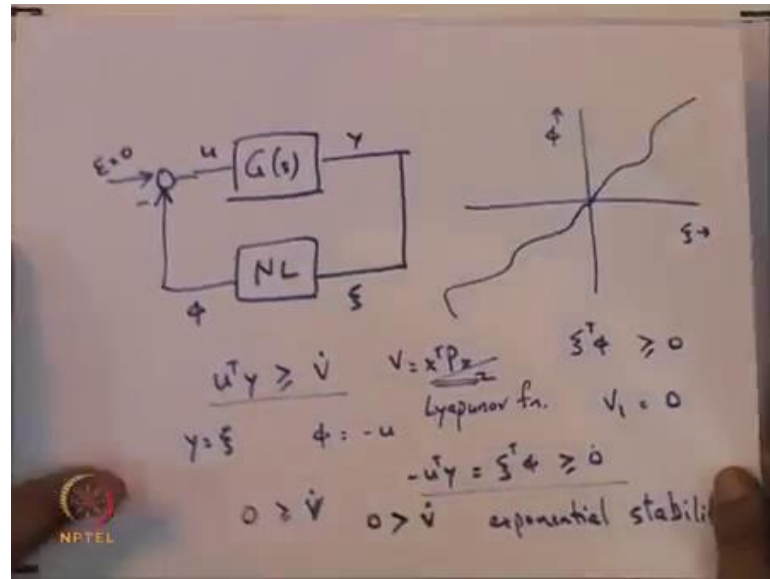 ε=0
-
u
G(s)
y
NL
φ
ξ
↑
φ
ξ→
uᵀy ≥ V̇
V = xᵀPx
2
Lyapunov fn.
ξᵀφ ≥ 0
V₁ = 0
y = ξ
φ = -u
-uᵀy = ξᵀφ ≥ 0
0 ≥ V̇
0 > V̇
exponential stabili
NPTEL